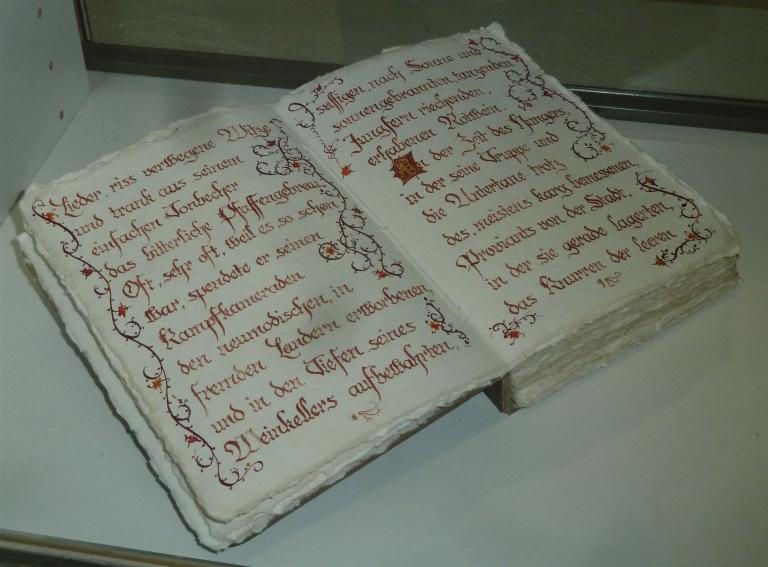 Lieder, riss verwegene Witze
und trank aus seinem
einfachen Tonbecher
das bitterliche Pfaffengebräu.
Oft, sehr oft, weil es so schön
war, spendete er seinen
Kampfkameraden
den neumodischen, in
fremden Ländern erworbenen
und in den Tiefen seines
Weinkellers aufbewahrten,
süffigen, nach Sonne und
sonnengebrannten tanzenden
Jungfern riechenden,
erhabenen Rotwein.
In der Zeit des Hungers,
in der seine Truppe und
die Untertane trotz
des meistens karg bemessenen
Proviants von der Stadt,
in der sie gerade lagerten,
das Knurren der leeren
8
9